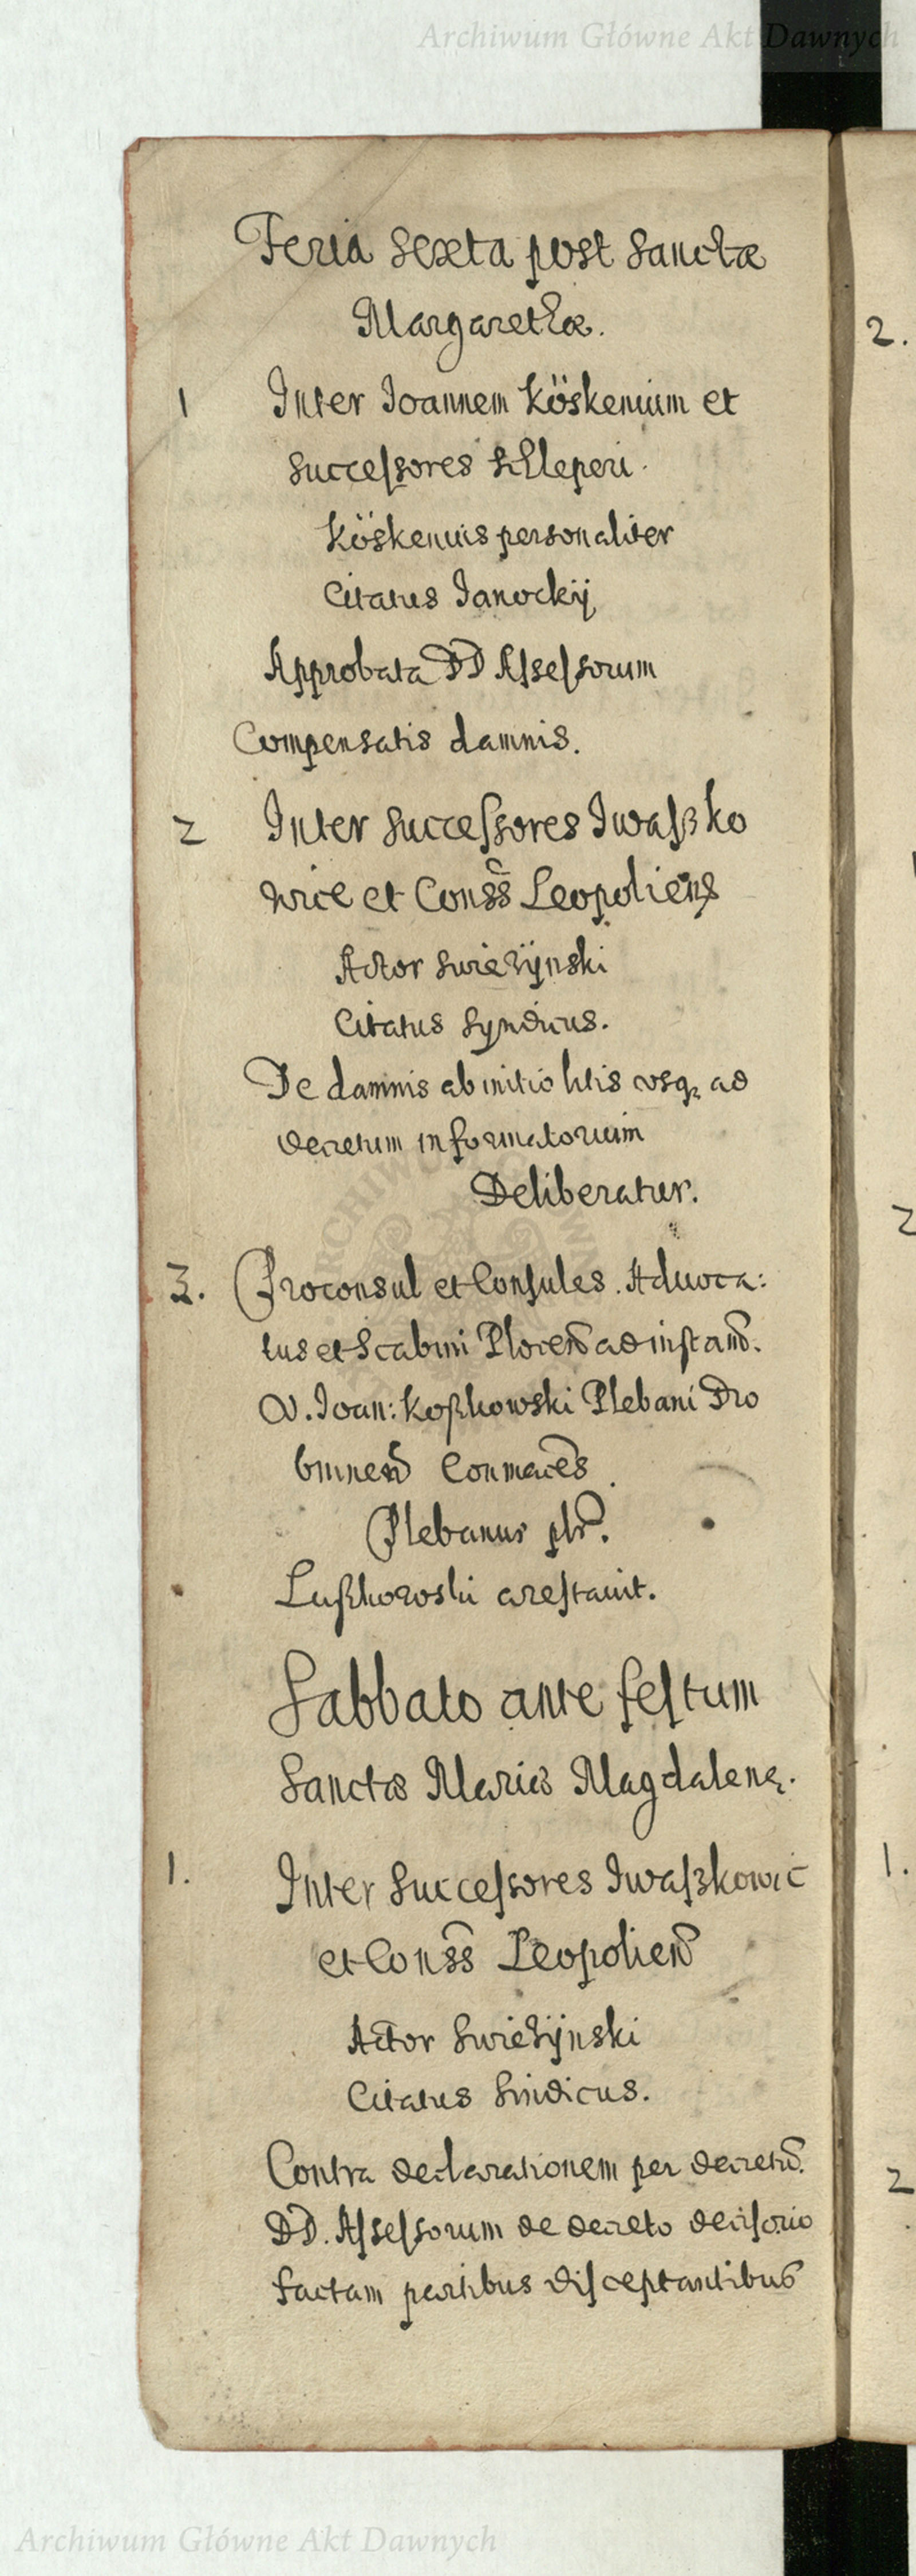 Archiwum Główne Akt Dawnych
Feria Sexta post Sanctæ
Margarethæ.
1 Inter Ioannem Köskenium et
Successores
Köskenius personaliter
Citatus Janockÿ
Approbata DD Assessorum
Compensatis damnis.
2 Inter Successores Iwaszko
wice et Conss Leopoliens
Actor Swieżÿnski
Citatus Syndicus.
De damnis ab initio litis vsq ad
decretum informatorium
Deliberatur.
3. Proconsul et Consules. Aduoca:
tus et Scabini Plocen ad instan.
V. Ioan: Koszkowski Plebani Dro
binnen Conmaces
Plebanus plr.
Luszkowski arestauit.
Sabbato ante festum
Sanctæ Mariæ Magdalenę.
1. Inter Successores Iwaszkowic
et Conss Leopolien
Actor Swieżÿnski
Citatus Sindicus.
Contra declarationem per decretu.
DD. Assessorum de decreto decisorio
factam partibus disceptantibus
2.
2
1.
2
Archiwum Główne Akt Dawnych